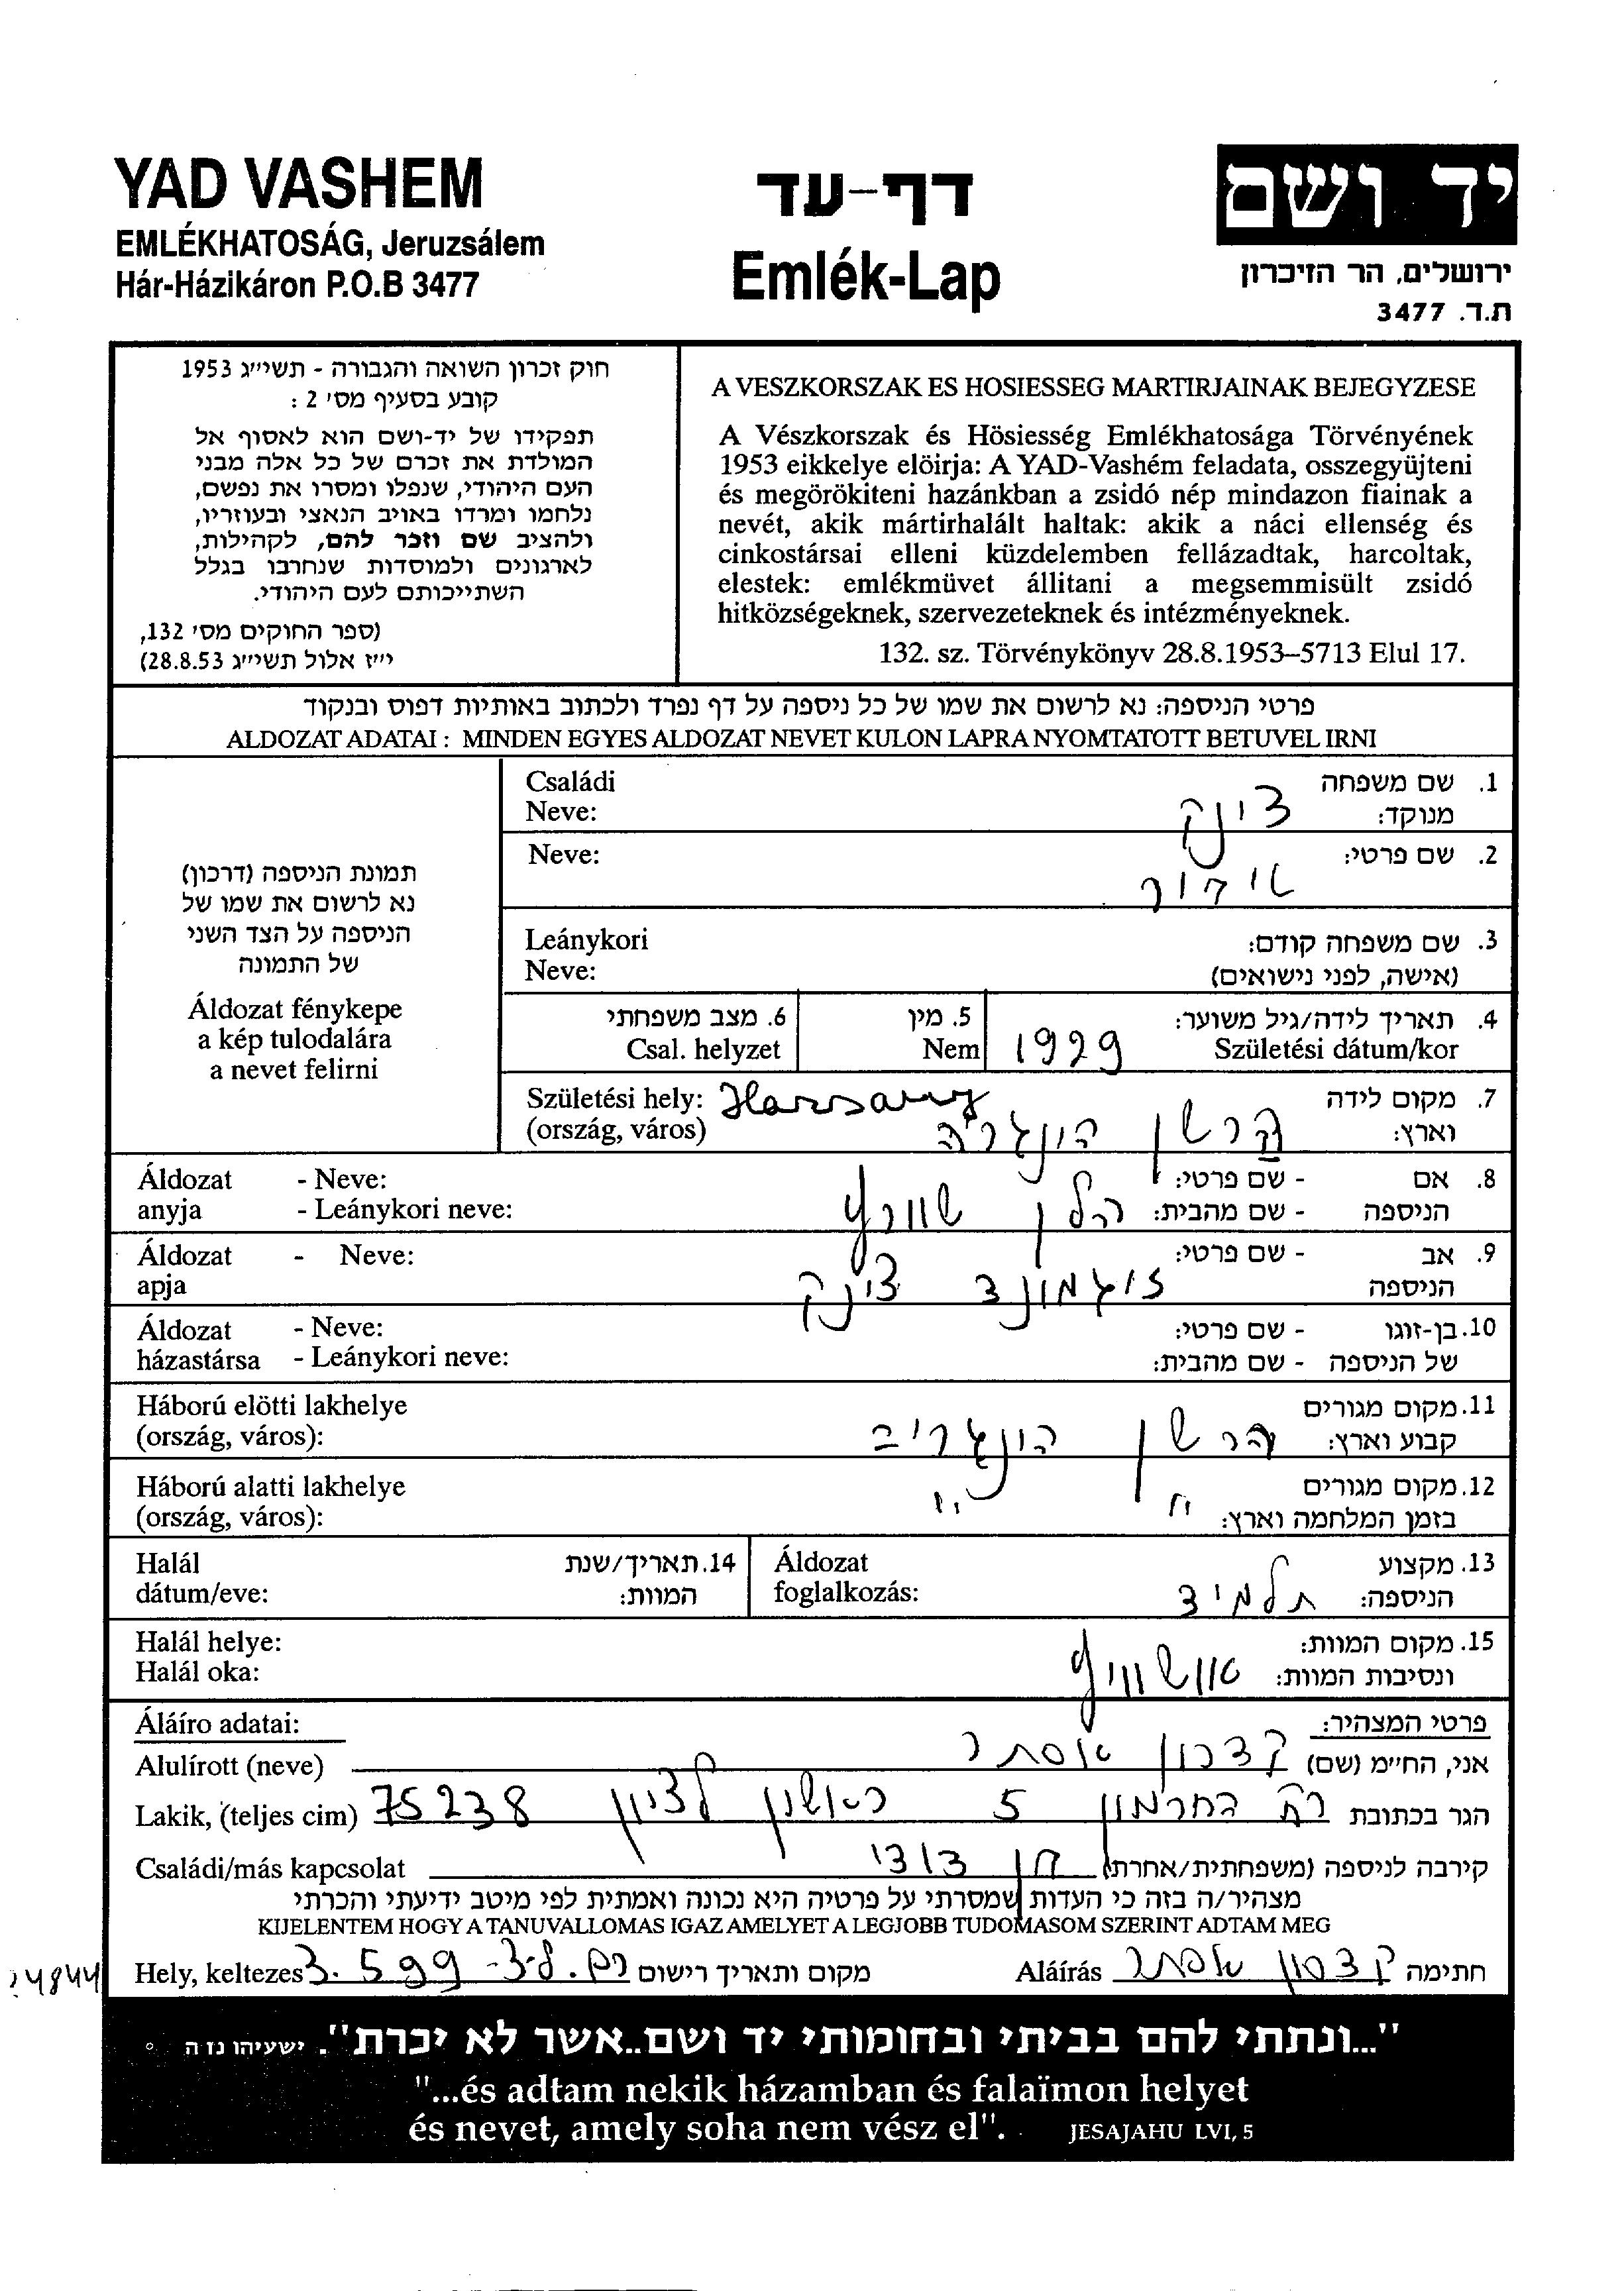 YAD VASHEM
EMLÉKHATOSÁG, Jeruzsálem
Hár-Házikáron P.O.B 3477
דף-עד
Emlék-Lap
יד ושם
ירושלים, הר הזיכרון
ת.ד. 3477
חוק זכרון השואה והגבורה - תשי״ג 1953
קובע בסעיף מס׳ 2 :
תפקידו של יד-ושם הוא לאסוף אל
המולדת את זכרם של כל אלה מבני
העם היהודי, שנפלו ומסרו את נפשם,
נלחמו ומרדו באויב הנאצי ובעוזריו,
ולהציב שם וזכר להם, לקהילות,
לארגונים ולמוסדות שנחרבו בגלל
השתייכותם לעם היהודי.
(ספר החוקים מס׳ 132,
י״ז אלול תשי״ג 28.8.53)
A VESZKORSZAK ES HOSIESSEG MARTIRJAINAK BEJEGYZESE
A Vészkorszak és Hösiesség Emlékhatosága Törvényének
1953 eikkelye elöirja: A YAD-Vashém feladata, osszegyüjteni
és megörökiteni hazánkban a zsidó nép mindazon fiainak a
nevét, akik mártirhalált haltak: akik a náci ellenség és
cinkostársai elleni küzdelemben fellázadtak, harcoltak,
elestek: emlékmüvet állitani a megsemmisült zsidó
hitközségeknek, szervezeteknek és intézményeknek.
132. sz. Törvénykönyv 28.8.1953–5713 Elul 17.
פרטי הניספה: נא לרשום את שמו של כל ניספה על דף נפרד ולכתוב באותיות דפוס ובנקוד
ALDOZAT ADATAI : MINDEN EGYES ALDOZAT NEVET KULON LAPRA NYOMTATOTT BETUVEL IRNI
תמונת הניספה (דרכון)
נא לרשום את שמו של
הניספה על הצד השני
של התמונה
Áldozat fénykepe
a kép tulodalára
a nevet felirni
1. שם משפחה
מנוקד: צינק
Családi
Neve:
2. שם פרטי: אידור
Neve:
3. שם משפחה קודם:
(אישה, לפני נישואים)
Leánykori
Neve:
4. תאריך לידה/גיל משוער:
Születési dátum/kor 1929
5. מין
Nem
6. מצב משפחתי
Csal. helyzet
7. מקום לידה
וארץ: הרשן הונגריה
Születési hely: Harsany
(ország, város)
8. אם - שם פרטי:
הניספה - שם מהבית: הלן שוורץ
Áldozat - Neve:
anyja - Leánykori neve:
9. אב - שם פרטי:
הניספה זיגמונד צינק
Áldozat - Neve:
apja
10. בן-זוגו - שם פרטי:
של הניספה - שם מהבית:
Áldozat - Neve:
házastársa - Leánykori neve:
11. מקום מגורים
קבוע וארץ: הרשן הונגריה
Háború elötti lakhelye
(ország, város):
12. מקום מגורים
בזמן המלחמה וארץ: " "
Háború alatti lakhelye
(ország, város):
13. מקצוע
הניספה: תלמיד
Áldozat
foglalkozás:
14. תאריך/שנת
המוות:
Halál
dátum/eve:
15. מקום המוות:
ונסיבות המוות: אושוויץ
Halál helye:
Halál oka:
פרטי המצהיר:
Áláíro adatai:
אני, הח״מ (שם) קצרון אסתר
Alulírott (neve)
הגר בכתובת רח החרמון 5 ראשון לציון 75238
Lakik, (teljes cim)
קירבה לניספה (משפחתית/אחרת) בן דודי
Családi/más kapcsolat
מצהיר/ה בזה כי העדות שמסרתי על פרטיה היא נכונה ואמתית לפי מיטב ידיעתי והכרתי
KIJELENTEM HOGY A TANUVALLOMAS IGAZ AMELYET A LEGJOBB TUDOMASOM SZERINT ADTAM MEG
חתימה קצרון אסתר Aláírás
מקום ותאריך רישום 3.5.99
Hely, keltezes
"...ונתתי להם בביתי ובחומותי יד ושם..אשר לא יכרת". ישעיהו נו ה
"...és adtam nekik házamban és falaïmon helyet
és nevet, amely soha nem vész el". JESAJAHU LVI, 5